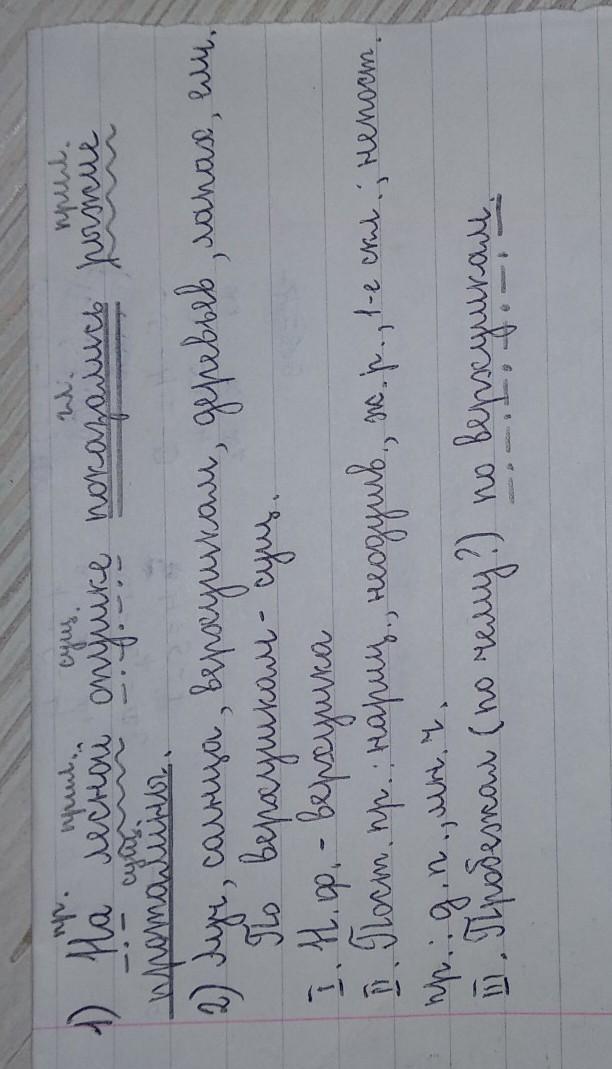 пр. прил. сущ. гл. прил.
1) На лесной опушке показались рыжие
сущ.
проталины.
2) Луч, солнца, верхушкам, деревьев, лапах, ели.
По верхушкам - сущ.
I. Н.ф. - верхушка
II. Пост. пр.: нариц., неодушв., ж.р., 1-е скл.; непост.
пр.: д.п., мн.ч.
III. Пробежал (по чему?) по верхушкам.